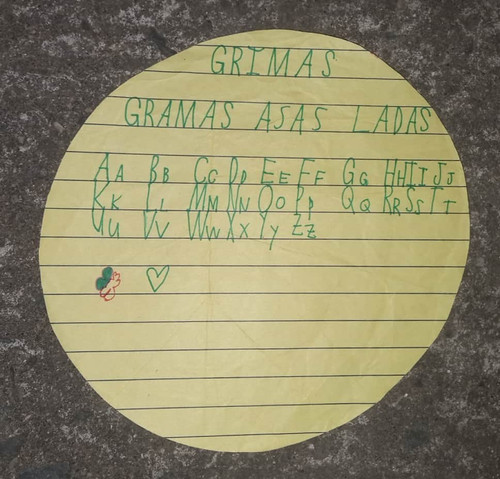 GRIMAS
GRAMAS ASAS LADAS
AA BB CC DD EE FF GG HH II JJ
KK LL MM NN OO PP QQ RR SS TT
UU VV WW XX YY ZZ